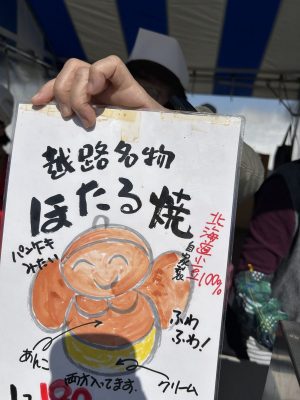 越路名物
ほたる焼
パンケーキみたい
北海道小豆100%
自家製
ふわふわ！
あんこ
クリーム
両方入ってます。
180